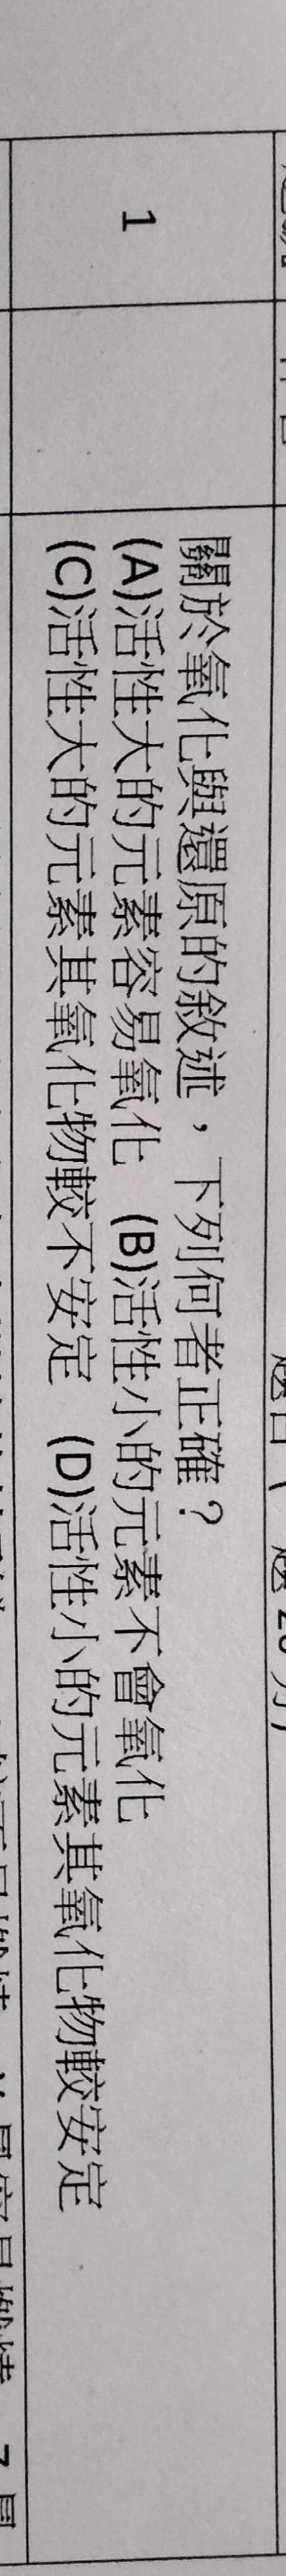 1
關於氧化與還原的敘述，下列何者正確？
(A)活性大的元素容易氧化 (B)活性小的元素不會氧化
(C)活性大的元素其氧化物較不安定 (D)活性小的元素其氧化物較安定